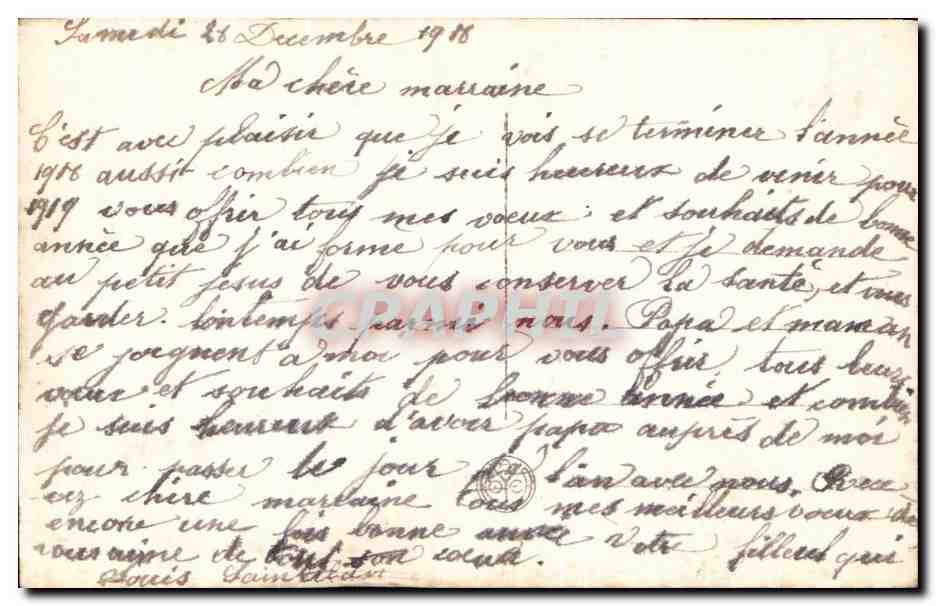 Samedi 28 Decembre 1918
Ma chère marraine
C'est avec plaisir que je vois se terminer l'année
1918 aussi combien je suis heureux de venir pour
1919 vous offrir tous mes voeux et souhaits de bonne
année que j'ai forme pour vous et je demande
au petit jesus de vous conserver la santé, et vous
garder lontemps parmi nous. Papa et maman
se joignent a moi pour vous offir tous leurs
voeux et souhaits de bonne année et combien
je suis heureux d'avoir papa auprès de moi
pour passer le jour de l'an avec nous. Rece
vez chère marraine tous mes meilleurs voeux de
encore une fois bonne année Votre filleul qui
vous aime de tout son coeur.
Louis
CPAPHIL